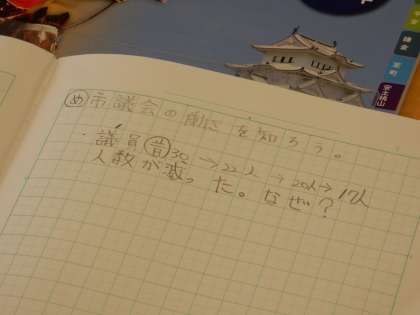 め 市議会の働きを知ろう。
・議員 昔 30→22人→20人→17人
人数が減った。なぜ？
鎌倉
室町
安土桃山